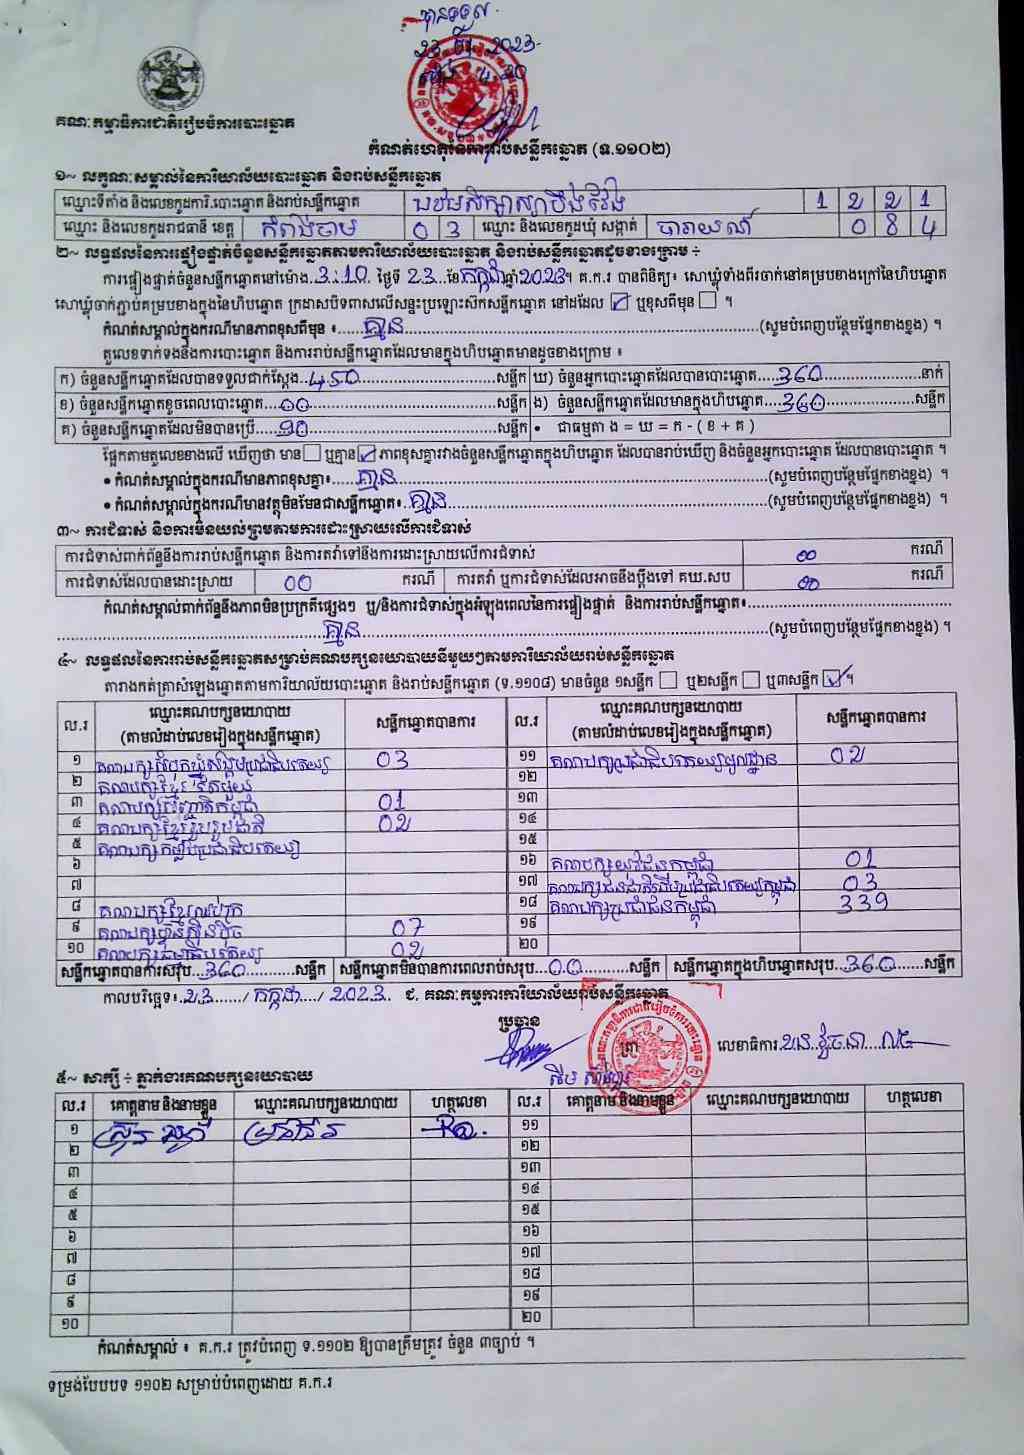 បានទទួល
23 2023
គណៈកម្មាធិការជាតិរៀបចំការបោះឆ្នោត
កំណត់ហេតុនៃការរាប់សន្លឹកឆ្នោត (ទ.១១០២)
១~ លក្ខណៈសម្គាល់នៃការិយាល័យបោះឆ្នោត និងរាប់សន្លឹកឆ្នោត
ឈ្មោះទីតាំង និងលេខកូដការិ.បោះឆ្នោត និងរាប់សន្លឹកឆ្នោត បឋមសិក្សា 1 2 2 1
ឈ្មោះ និងលេខកូដរាជធានី ខេត្ត កំពង់ចាម 0 3 ឈ្មោះ និងលេខកូដឃុំ សង្កាត់ បារាយណ៍ 0 8 4
២~ លទ្ធផលនៃការផ្ទៀងផ្ទាត់ចំនួនសន្លឹកឆ្នោតតាមការិយាល័យបោះឆ្នោត និងរាប់សន្លឹកឆ្នោតដូចខាងក្រោម ÷
ការផ្ទៀងផ្ទាត់ចំនួនសន្លឹកឆ្នោតនៅម៉ោង 3:10 ថ្ងៃទី 23 ខែ កក្កដា ឆ្នាំ 2023។ គ.ក.រ បានពិនិត្យ៖ សោឃ្លុំទាំងពីរចាក់នៅគម្របខាងក្រៅនៃហិបឆ្នោត
សោឃ្លុំចាក់ភ្ជាប់គម្របខាងក្នុងនៃហិបឆ្នោត ក្រដាសបិទពាសលើសន្ទះប្រឡោះស៊កសន្លឹកឆ្នោត នៅដដែល ☑ ឬខុសពីមុន ☐ ។
កំណត់សម្គាល់ក្នុងករណីមានភាពខុសពីមុន ៖ គ្មាន (សូមបំពេញបន្ថែមផ្នែកខាងខ្នង) ។
តួលេខទាក់ទងនឹងការបោះឆ្នោត និងការរាប់សន្លឹកឆ្នោតដែលមានក្នុងហិបឆ្នោតមានដូចខាងក្រោម ៖
ក) ចំនួនសន្លឹកឆ្នោតដែលបានទទួលជាក់ស្តែង 450 សន្លឹក ឃ) ចំនួនអ្នកបោះឆ្នោតដែលបានបោះឆ្នោត 360 នាក់
ខ) ចំនួនសន្លឹកឆ្នោតខូចពេលបោះឆ្នោត 00 សន្លឹក ង) ចំនួនសន្លឹកឆ្នោតដែលមានក្នុងហិបឆ្នោត 360 សន្លឹក
គ) ចំនួនសន្លឹកឆ្នោតដែលមិនបានប្រើ 90 សន្លឹក • ជាធម្មតា ង = ឃ = ក - ( ខ + គ )
ផ្អែកតាមតួលេខខាងលើ ឃើញថា មាន ☐ ឬគ្មាន ☑ ភាពខុសគ្នារវាងចំនួនសន្លឹកឆ្នោតក្នុងហិបឆ្នោត ដែលបានរាប់ឃើញ និងចំនួនអ្នកបោះឆ្នោត ដែលបានបោះឆ្នោត ។
• កំណត់សម្គាល់ក្នុងករណីមានភាពខុសគ្នា៖ គ្មាន (សូមបំពេញបន្ថែមផ្នែកខាងខ្នង) ។
• កំណត់សម្គាល់ក្នុងករណីមានវត្ថុមិនមែនជាសន្លឹកឆ្នោត៖ គ្មាន (សូមបំពេញបន្ថែមផ្នែកខាងខ្នង) ។
៣~ ការជំទាស់ និងការមិនយល់ព្រមតាមការដោះស្រាយលើការជំទាស់
ការជំទាស់ពាក់ព័ន្ធនឹងការរាប់សន្លឹកឆ្នោត និងការតវ៉ាទៅនឹងការដោះស្រាយលើការជំទាស់ 00 ករណី
ការជំទាស់ដែលបានដោះស្រាយ 00 ករណី ការតវ៉ា ឬការជំទាស់ដែលអាចនឹងប្តឹងទៅ គឃ.សប 00 ករណី
កំណត់សម្គាល់ពាក់ព័ន្ធនឹងភាពមិនប្រក្រតីផ្សេងៗ ឬ/និងការជំទាស់ក្នុងអំឡុងពេលនៃការផ្ទៀងផ្ទាត់ និងការរាប់សន្លឹកឆ្នោត៖
គ្មាន (សូមបំពេញបន្ថែមផ្នែកខាងខ្នង) ។
៤~ លទ្ធផលនៃការរាប់សន្លឹកឆ្នោតសម្រាប់គណបក្សនយោបាយនីមួយៗតាមការិយាល័យរាប់សន្លឹកឆ្នោត
តារាងកត់ត្រាសំឡេងឆ្នោតតាមការិយាល័យបោះឆ្នោត និងរាប់សន្លឹកឆ្នោត (ទ.១១០៨) មានចំនួន ១សន្លឹក ☐ ឬ២សន្លឹក ☐ ឬ៣សន្លឹក ☑ ។
ល.រ ឈ្មោះគណបក្សនយោបាយ (តាមលំដាប់លេខរៀងក្នុងសន្លឹកឆ្នោត) សន្លឹកឆ្នោតបានការ ល.រ ឈ្មោះគណបក្សនយោបាយ (តាមលំដាប់លេខរៀងក្នុងសន្លឹកឆ្នោត) សន្លឹកឆ្នោតបានការ
១ គណបក្សសំបុកឃ្មុំសង្គមប្រជាធិបតេយ្យ 03 ១១ គណបក្សប្រជាធិបតេយ្យមូលដ្ឋាន 02
២ គណបក្សខ្មែរតែមួយ ១២
៣ គណបក្សបញ្ញាតិកម្ពុជា 01 ១៣
៤ គណបក្សខ្មែររួបរួមជាតិ 02 ១៤
៥ គណបក្សកម្លាំងប្រជាធិបតេយ្យ ១៥
៦ ១៦ គណបក្សយុវជនកម្ពុជា 01
៧ ១៧ គណបក្សជនជាតិដើមប្រជាធិបតេយ្យកម្ពុជា 03
៨ គណបក្សខ្មែរឈប់ក្រ ១៨ គណបក្សប្រជាជនកម្ពុជា 339
៩ គណបក្សហ៊្វុនស៊ិនប៉ិច 07 ១៩
១០ គណបក្សធម្មាធិបតេយ្យ 02 ២០
សន្លឹកឆ្នោតបានការសរុប 360 សន្លឹក សន្លឹកឆ្នោតមិនបានការពេលរាប់សរុប 00 សន្លឹក សន្លឹកឆ្នោតក្នុងហិបឆ្នោតសរុប 360 សន្លឹក
កាលបរិច្ឆេទ៖ 23 / កក្កដា / 2023 ជ. គណៈកម្មការការិយាល័យរាប់សន្លឹកឆ្នោត
ប្រធាន ត្រា លេខាធិការ
៥~ សាក្សី ÷ ភ្នាក់ងារគណបក្សនយោបាយ
ល.រ គោត្តនាម និងនាមខ្លួន ឈ្មោះគណបក្សនយោបាយ ហត្ថលេខា ល.រ គោត្តនាម និងនាមខ្លួន ឈ្មោះគណបក្សនយោបាយ ហត្ថលេខា
១ ១១
២ ១២
៣ ១៣
៤ ១៤
៥ ១៥
៦ ១៦
៧ ១៧
៨ ១៨
៩ ១៩
១០ ២០
កំណត់សម្គាល់ ៖ គ.ក.រ ត្រូវបំពេញ ទ.១១០២ ឱ្យបានត្រឹមត្រូវ ចំនួន ៣ច្បាប់ ។
ទម្រង់បែបបទ ១១០២ សម្រាប់បំពេញដោយ គ.ក.រ